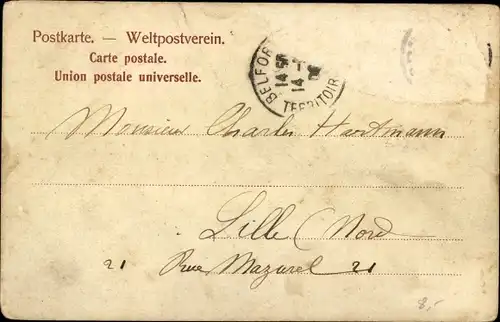 Postkarte. — Weltpostverein.
Carte postale.
Union postale universelle.
BELFORT
14 -
14
TERRITOIR
Monsieur Charles Hartmann
Lille (Nord
21 Rue Mazurel 21
8,-